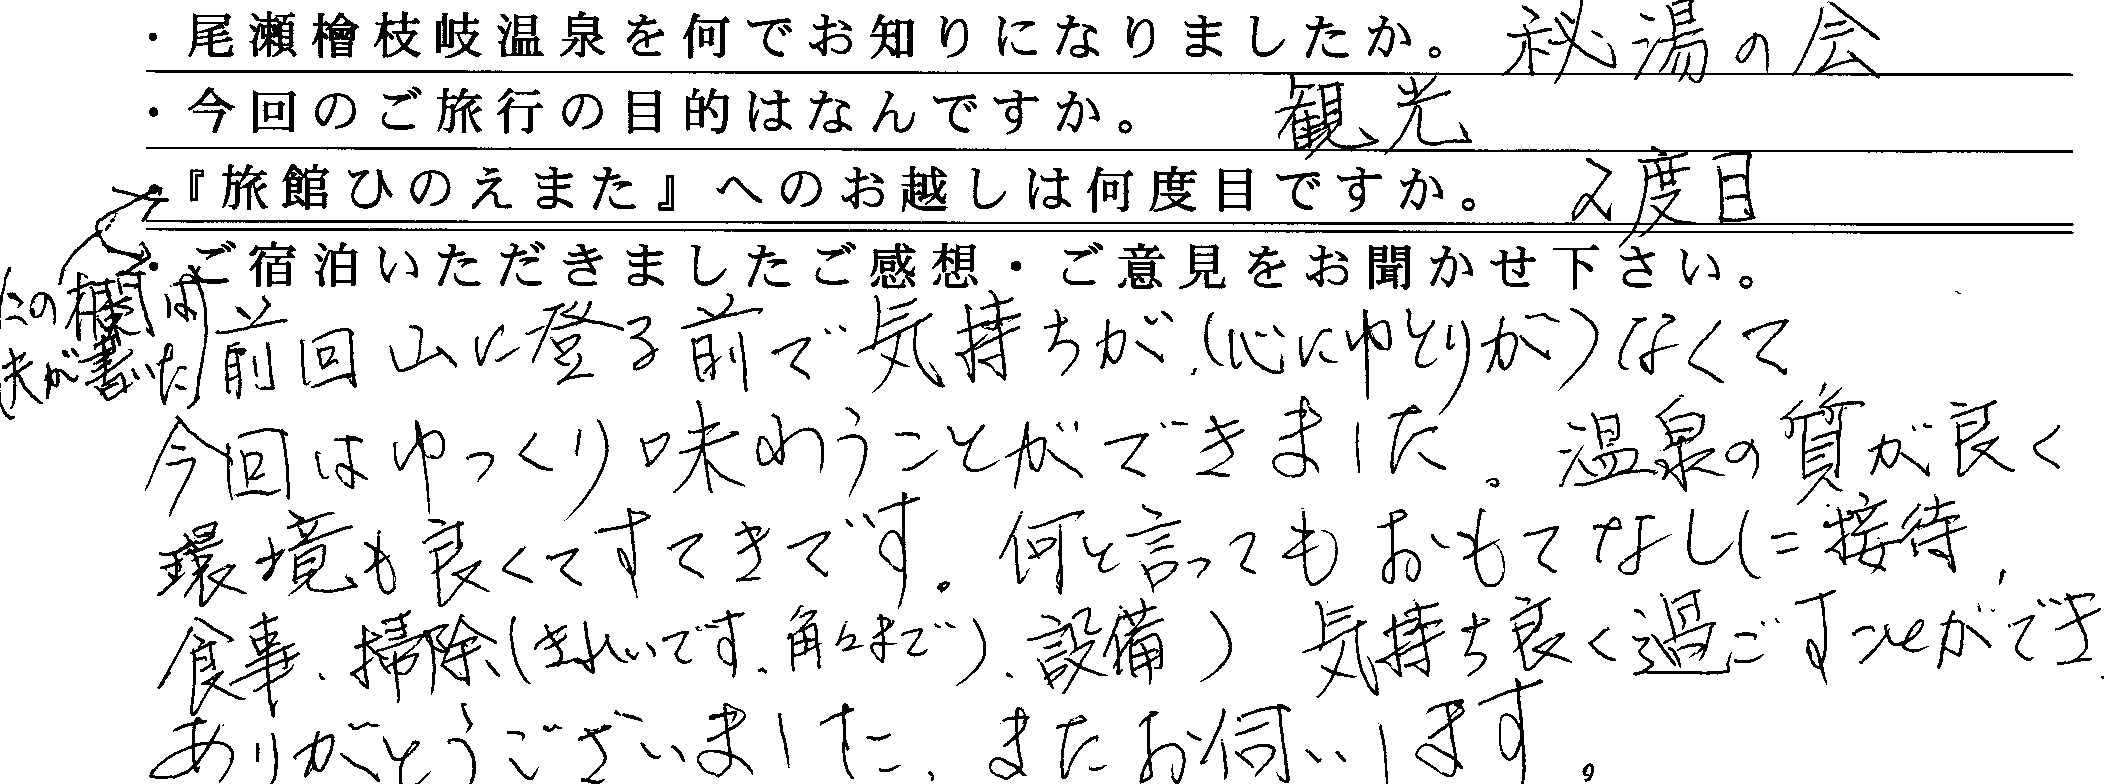 ・尾瀬檜枝岐温泉を何でお知りになりましたか。 秘湯の会
・今回のご旅行の目的はなんですか。 観光
・『旅館ひのえまた』へのお越しは何度目ですか。 2度目
・ご宿泊いただきましたご感想・ご意見をお聞かせ下さい。
の欄は
夫が書いた
前回山に登る前で気持ちが(心にゆとりが)なくて
今回はゆっくり味わうことができました。温泉の質が良く
環境も良くてすてきです。何と言ってもおもてなし(ニ接待、
食事、掃除(きれいです、角々まで)、設備) 気持ち良く過ごすことができ
ありがとうございました。またお伺いします。